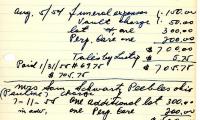 Aug. 5/54 Funeral expenses 1.150.00
Vault charge 1.50.00
lot & one 300.00
Perp. Care one 200.00
$1700.00
Sales by Lusty 5.75
Paid 1/31/55 #6975 $1705.75
$705.75
Mrs Sam Schwartz Peebles ohio
(Pauline)
7-11-55 one additional lot 300.00
in adv, one Perp. Care 200.00